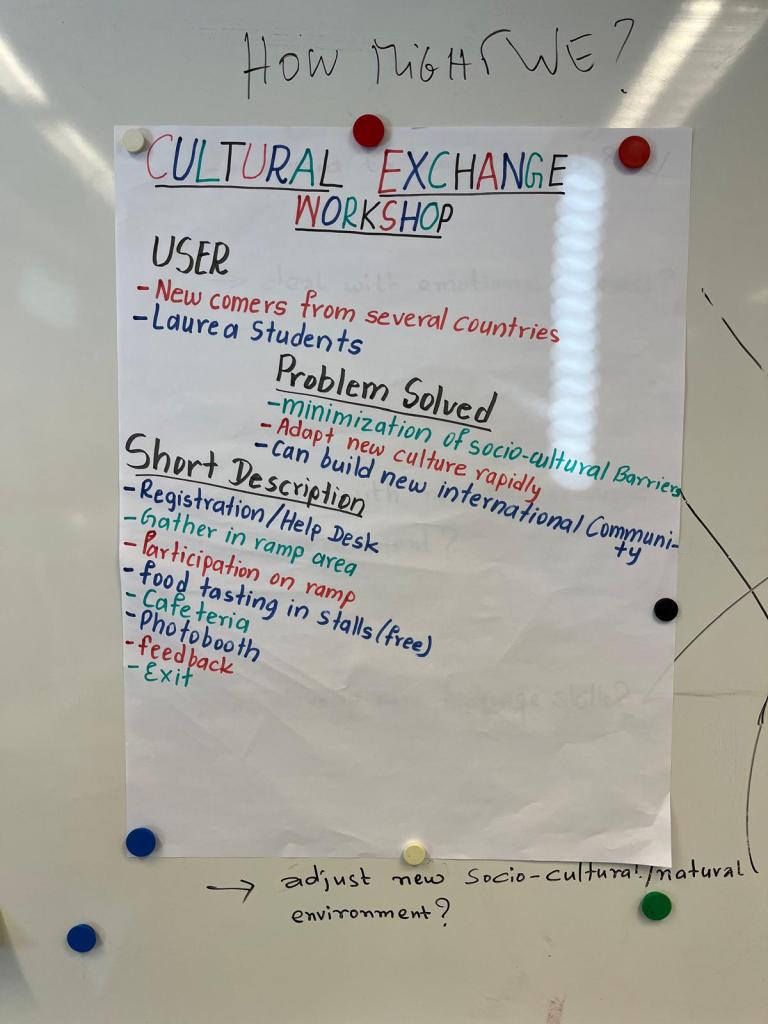 HOW MIGHT WE?
CULTURAL EXCHANGE
WORKSHOP
USER
- New comers from several countries
- Laurea Students
Problem Solved
- minimization of socio-cultural Barriers
- Adapt new culture rapidly
- Can build new international Communi-
ty
Short Description
- Registration/Help Desk
- Gather in ramp area
- Participation on ramp
- food tasting in stalls (free)
- Cafeteria
- Photobooth
- feedback
- Exit
→ adjust new socio-cultural/natural
environment?